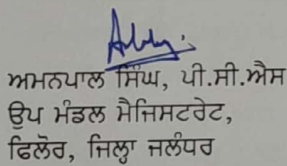 ਅਮਨਪਾਲ ਸਿੰਘ, ਪੀ.ਸੀ.ਐਸ
ਉਪ ਮੰਡਲ ਮੈਜਿਸਟਰੇਟ,
ਫਿਲੌਰ, ਜਿਲ੍ਹਾ ਜਲੰਧਰ